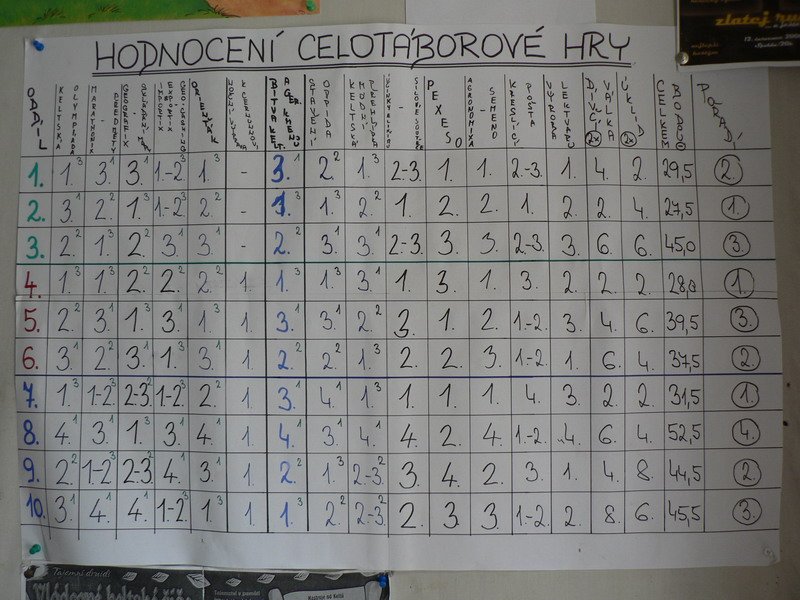 zlatej
HODNOCENÍ CELOTÁBOROVÉ HRY
ODDÍL KELTSKÁ OLYMPIÁDA MARATHONIX - PŘEDMĚTY GEOGRAFIX ORIENŤÁK BITVA KELT. STAVENÍ OPPIDA KELTSKÁ MÓDNÍ PŘEHLÍDKA PEXESO AGRONOMIX - SEMENO KRESLÍCÍ POŠTA VÝROBA LEKTVARU DÍVČÍ VÁLKA 2x ÚKLID 2x CELKEM BODŮ POŘADÍ
1. 1.³ 3.¹ 3.¹ 1.-2.³ 1.³ - 3.¹ 2.² 1.³ 2.-3. 1. 1. 2.-3. 1. 4. 2. 29,5 2.
2. 3.¹ 2.² 1.³ 1.-2.³ 2.² - 1.³ 1.³ 2.² 1. 2. 2. 1. 2. 2. 4. 27,5 1.
3. 2.² 1.³ 2.² 3.¹ 3.¹ - 2.² 3.¹ 3.¹ 2.-3. 3. 3. 2.-3. 3. 6. 6. 45,0 3.
4. 1.³ 1.³ 2.² 2.² 2.² 1. 1.³ 1.³ 3.¹ 1. 3. 1. 3. 2. 2. 2. 28,0 1.
5. 2.² 3.¹ 1.³ 3.¹ 1.³ 1. 3.¹ 3.¹ 2.² 3. 1. 2. 1.-2. 3. 4. 6. 39,5 3.
6. 3.¹ 2.² 3.¹ 1.³ 3.¹ 1. 2.² 2.² 1.³ 2. 2. 3. 1.-2. 1. 6. 4. 37,5 2.
7. 1.³ 1-2.³ 2-3.² 1-2.³ 2.² 1. 3.¹ 4.¹ 1.³ 1. 1. 1. 4. 3. 2. 2. 31,5 1.
8. 4.¹ 3.¹ 1.³ 3.¹ 4.¹ 1. 4.¹ 3.¹ 4.¹ 4. 2. 4. 1.-2. 4. 6. 4. 52,5 4.
9. 2.² 1-2.³ 2-3.² 4.¹ 3.¹ 1. 2.² 1.³ 2.-3.² 3. 4. 2. 3. 1. 4. 8. 44,5 2.
10. 3.¹ 4.¹ 4.¹ 1-2.³ 1.³ 1. 1.³ 2.² 2.-3.² 2. 3. 3. 1.-2. 2. 8. 6. 45,5 3.
Tajemní druidi